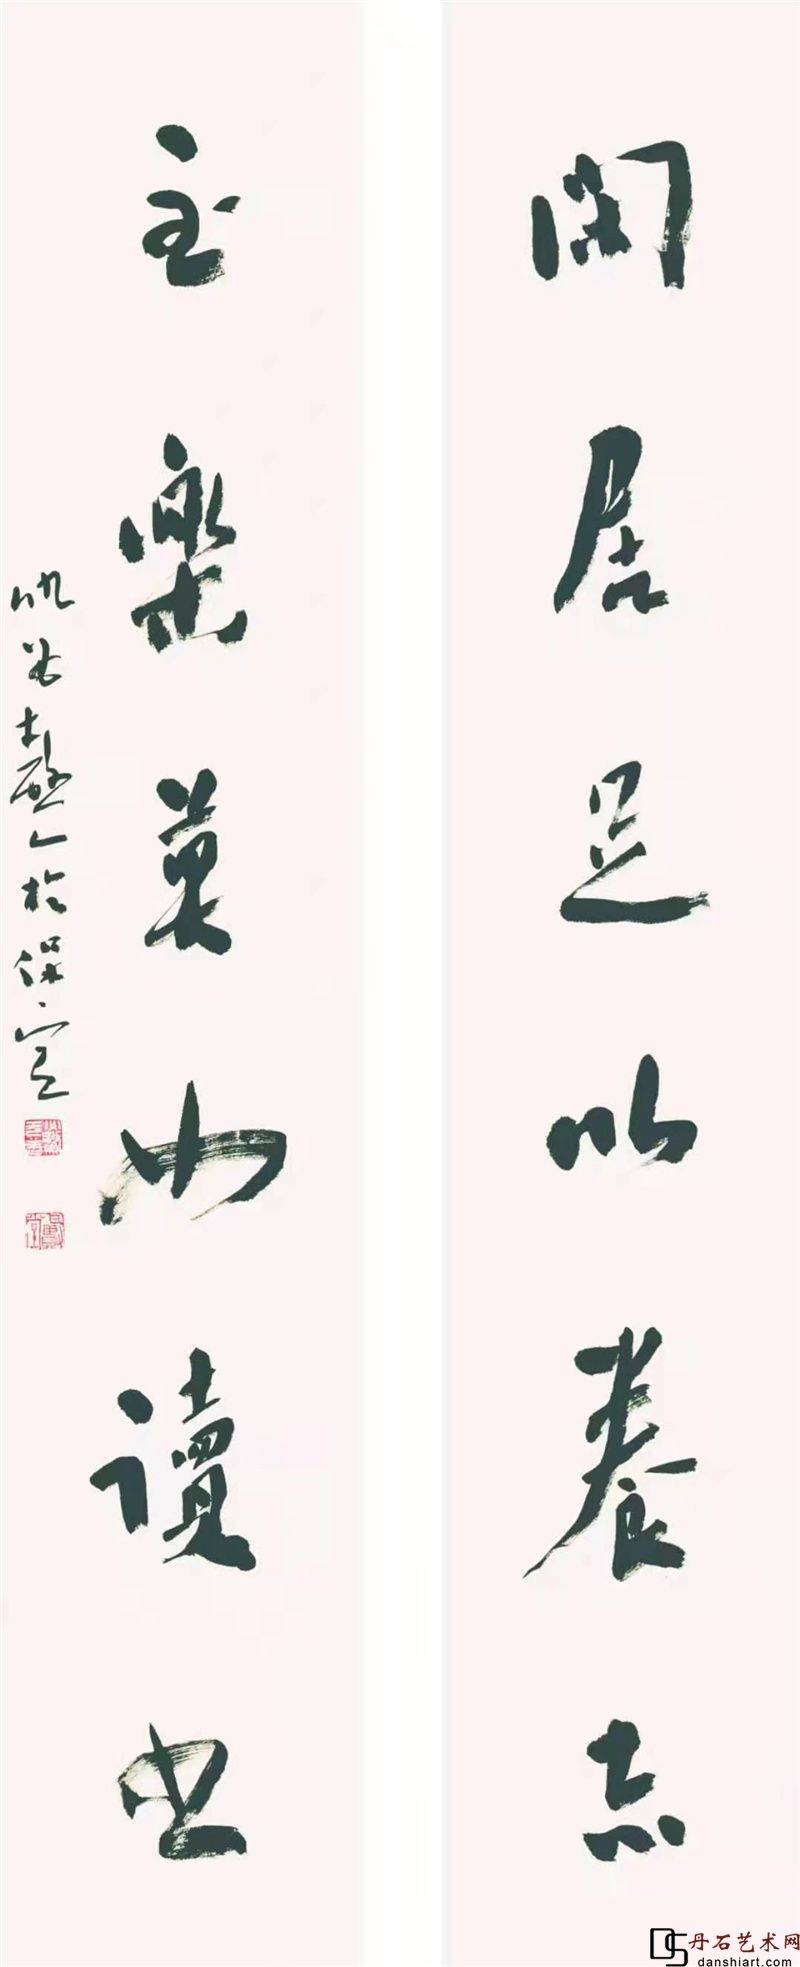 閑居足以養志
至樂莫如讀书
於保定
丹石艺术网
danshiart.com